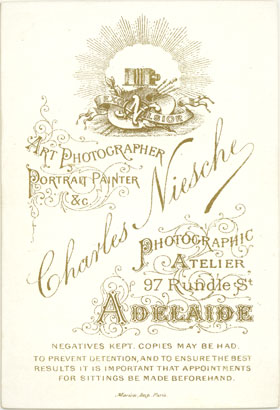 ART PHOTOGRAPHER
PORTRAIT PAINTER
&c.
Charles Niesche
PHOTOGRAPHIC
ATELIER
97 RUNDLE ST
ADELAIDE
NEGATIVES KEPT. COPIES MAY BE HAD.
TO PREVENT DETENTION, AND TO ENSURE THE BEST
RESULTS IT IS IMPORTANT THAT APPOINTMENTS
FOR SITTINGS BE MADE BEFOREHAND.